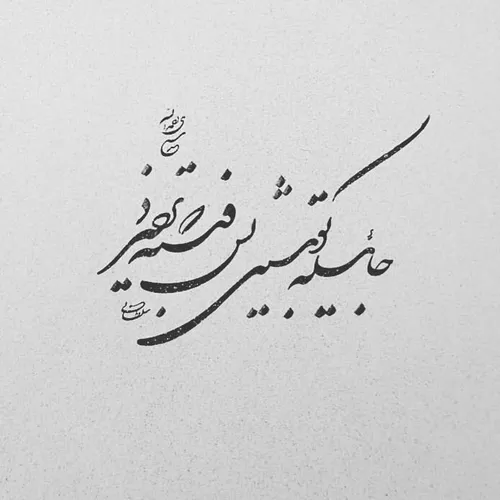 جائیکه تو بنشینی بس فتنه که برخیزد